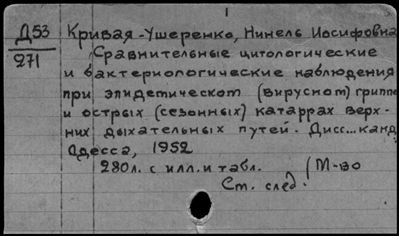 I
Д53
271
Кривая-Ушеренко, Нинель Иосифовна
Сравнительные цитологические
и бактериологические наблюдения
при эпидемическом (вирусном) гриппе
и острых (сезонных) катаррах верх-
них дыхательных путей. Дисс...канд
Одесса, 1952
280л. с илл. и табл. (М-во
См. след.